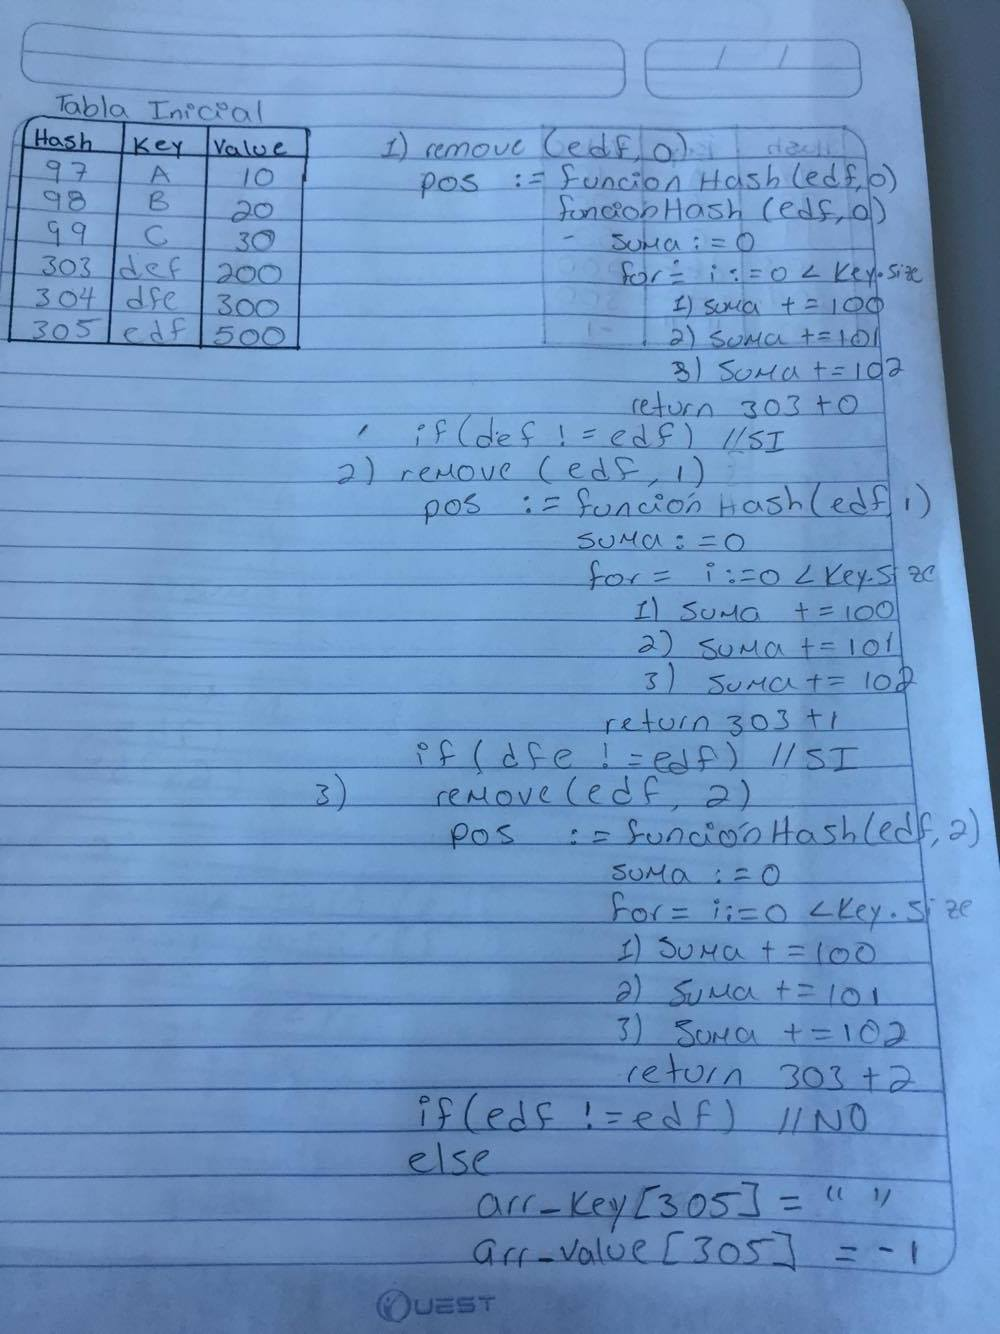 Tabla Inicial
Hash Key Value
97 A 10
98 B 20
99 C 30
303 def 200
304 dfe 300
305 edf 500
1) remove (edf, 0)
pos := funcion Hash(edf, 0)
funcion Hash (edf, 0)
suma := 0
for = i := 0 < Key.size
1) suma += 100
2) suma += 101
3) suma += 102
return 303 + 0
if (def != edf) //SI
2) remove (edf, 1)
pos := función Hash(edf, 1)
suma := 0
for = i := 0 < Key.size
1) suma += 100
2) suma += 101
3) suma += 102
return 303 + 1
if ( dfe != edf) //SI
3) remove (edf, 2)
pos := función Hash(edf, 2)
suma := 0
for = i := 0 < Key.size
1) suma += 100
2) suma += 101
3) suma += 102
return 303 + 2
if (edf != edf) //NO
else
arr_Key[305] = " "
arr_value[305] = -1
QUEST